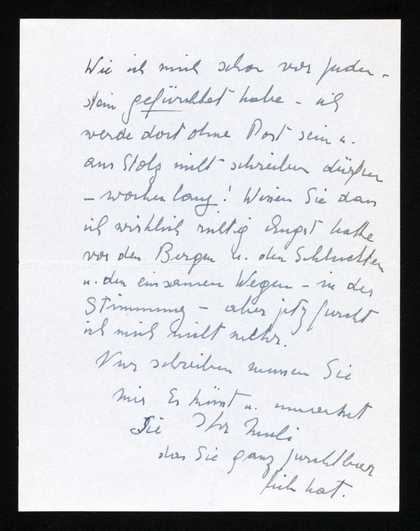 Wie ich mich schon vor Juden-
stein gefürchtet habe - ich
werde dort ohne Post sein u.
aus Stolz nicht schreiben dürfen
- wochenlang! Wissen Sie dass
ich wirklich richtig Angst hatte
vor den Bergen u. den Schluchten
u. den einsamen Wegen - in der
Stimmung - aber jetzt fürcht
ich mich nicht mehr.
Nur schreiben müssen Sie
mir. Es küsst u. umarmt
Sie Ihr
das Sie ganz furchtbar
lieb hat.